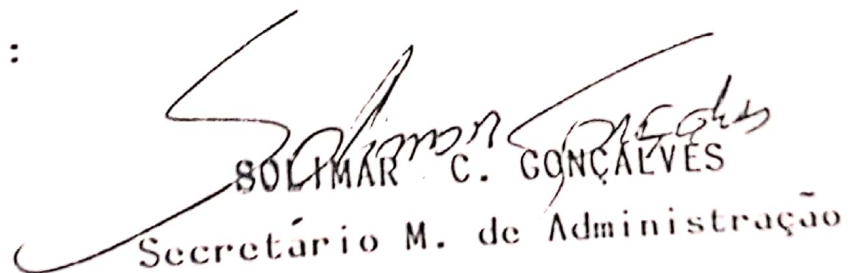 :
SOLIMAR C. GONÇALVES
Secretário M. de Administração